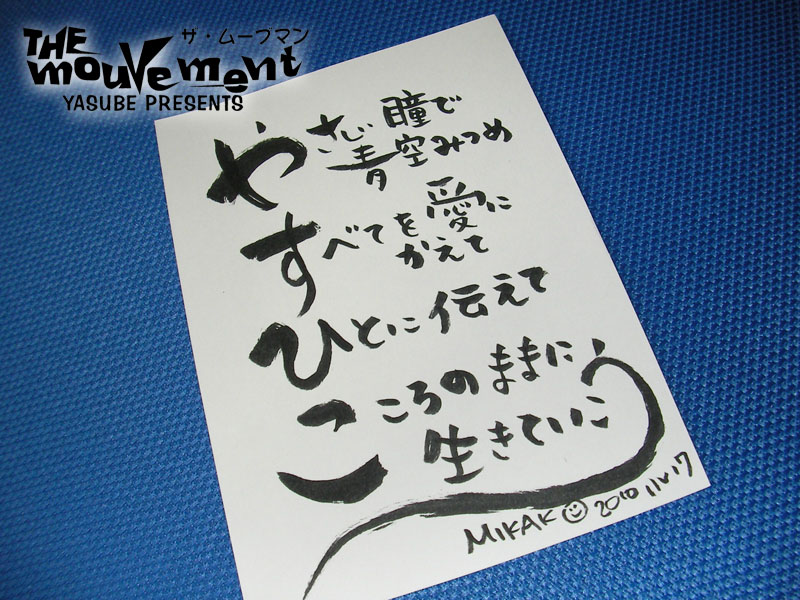 THE
ザ・ムーブマン
mouvement
YASUBE PRESENTS
やさしい瞳で
青空みつめ
すべてを愛に
かえて
ひとに伝えて
こころのままに
生きていこう
MIKAKO 2010 11/17